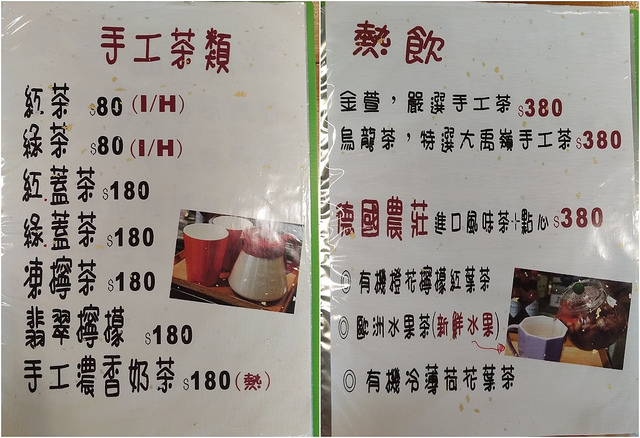 手工茶類
紅茶 $80 (I/H)
綠茶 $80 (I/H)
紅.蓋茶 $180
綠.蓋茶 $180
凍檸茶 $180
翡翠檸檬 $180
手工濃香奶茶 $180(熱)
熱飲
金萱，嚴選手工茶 $380
烏龍茶，特選大禹嶺手工茶 $380
德國農莊 進口風味茶+點心 $380
◎ 有機橙花檸檬紅葉茶
◎ 歐洲水果茶(新鮮水果)
◎ 有機冷薄荷花葉茶